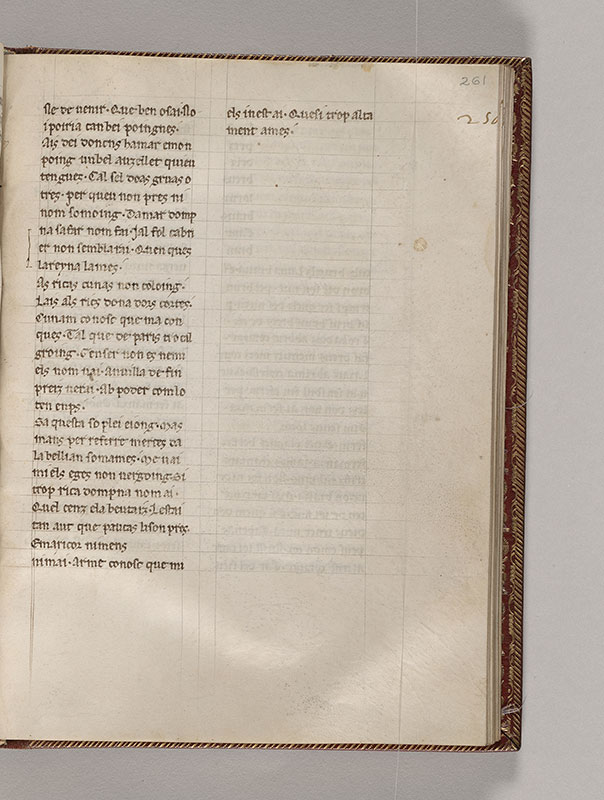 261
250
sle de uenir · Que ben osai · No
i poiria tan bei poingnes ·
Ais dei donens hamar emon
poing un bel auzellet quieu
tengues · Cal sel doas gruas o
tres · per queu non pres ni
nom somoing · Damar domp
na safar nom fai · Jal fol cabri
er non semblarai · Quen ques
la reyna lames ·
As ricas cunas non coloing ·
Lais als rics dona dors cortes ·
Cunam conosc que ma con
ques · Tal que de paris tro cil
groing · Genser non es nemi
els nom uai · Auuilla de fin
preiz uerai · Ab poder com lo
ten enps ·
Sa questa so plei eioing · Mas
mans per referir merces ca
la bellian somames · Me uai
miels eges non uergoing · Si
trop rica dompna nom ai ·
Quel cenz ela beutaiz · Lestai
tan aut que pautas li son pres ·
Emaricor nimens
nimai · Arme conosc que mi
els in estai · Ques i trop alta
ment ames ·